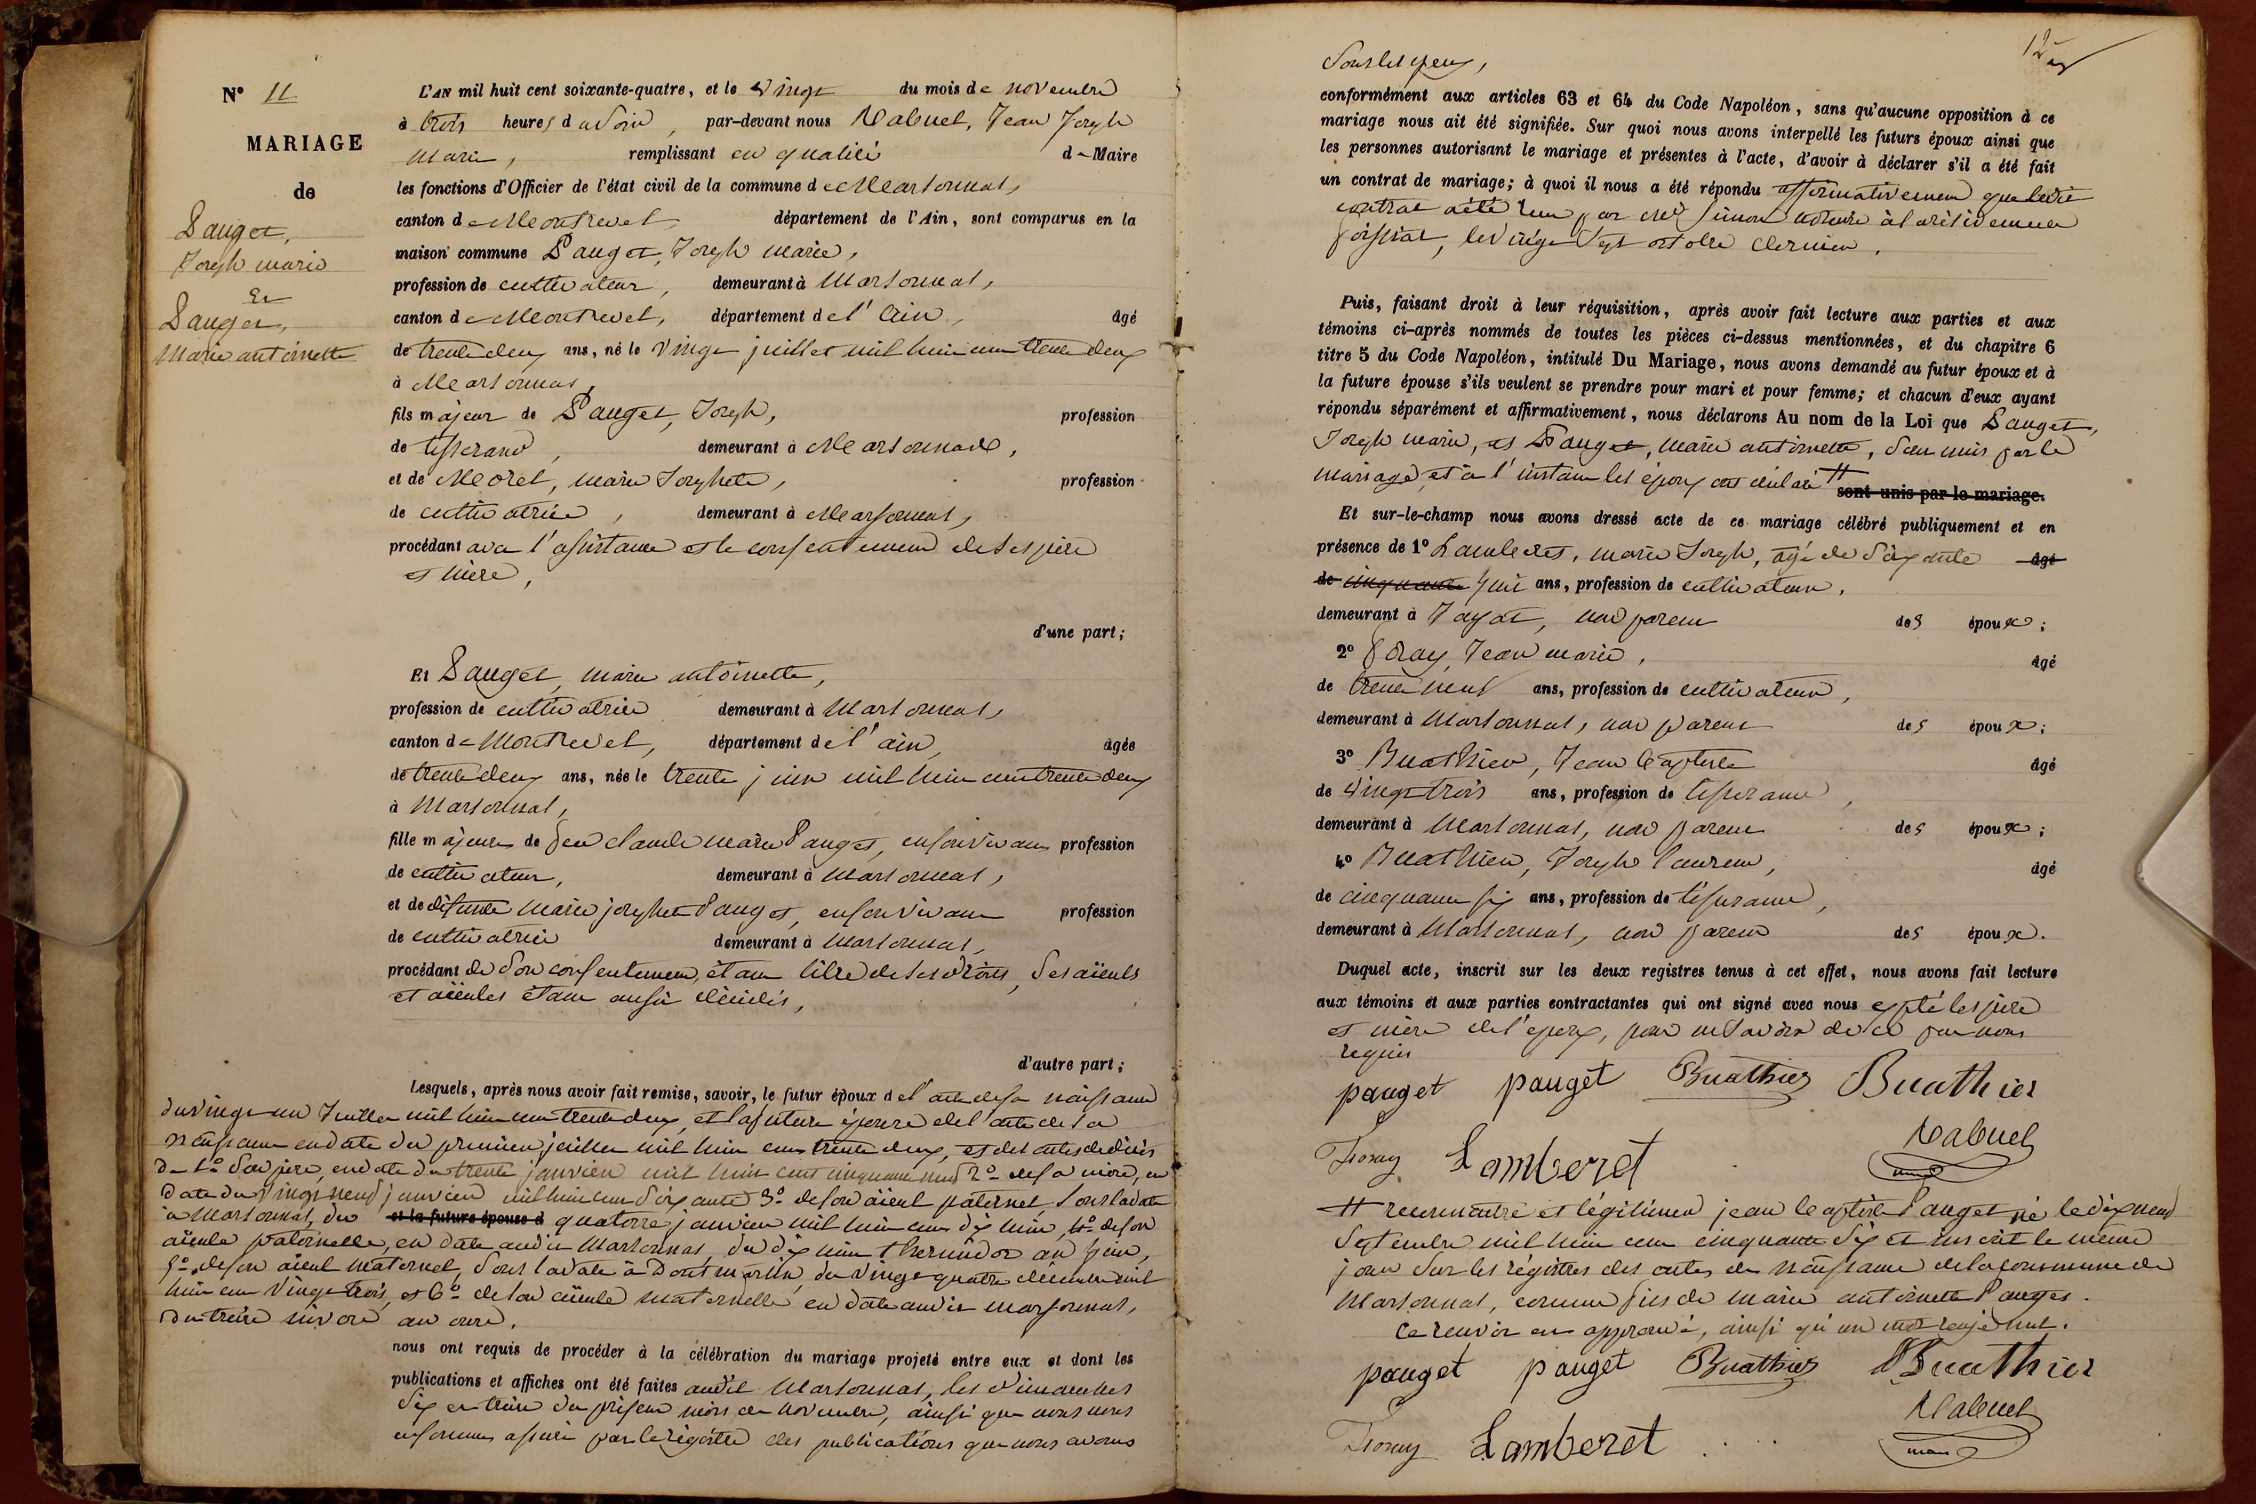 N° 11
MARIAGE
de
Pauget,
Joseph marie
Et
Pauget,
Marie antoinette
L'AN mil huit cent soixante-quatre, et le vingt du mois de novembre
à trois heures du soir, par-devant nous Rabuel, Jean Joseph
Marie, remplissant en qualité de Maire
les fonctions d'Officier de l'état civil de la commune de Marsonnas,
canton de Montrevel, département de l'Ain, sont comparus en la
maison commune Pauget, Joseph marie,
profession de cultivateur, demeurant à Marsonnas,
canton de Montrevel, département de l'ain, âgé
de trente deux ans, né le vingt juillet mil huit cent trente deux
à Marsonnas,
fils majeur de Pauget, Joseph, profession
de tisserand, demeurant à Marsonnas,
et de Morel, marie Josephte, profession
de cultivatrice, demeurant à Marsonnas,
procédant avec l'assistance et le consentement de ses père
et mère,
d'une part;
Et Pauget, marie antoinette,
profession de cultivatrice demeurant à Marsonnas,
canton de Montrevel, département de l'ain, âgée
de trente deux ans, née le trente juin mil huit cent trente deux
à Marsonnas,
fille majeure de feu claude marie Pauget, en son vivant profession
de cultivateur, demeurant à Marsonnas,
et de défunte marie josephte Pauget, en son vivant profession
de cultivatrice demeurant à Marsonnas,
procédant de son consentement, étant libre de ses droits, ses aïeuls
et aïeules étant aussi décédés,
d'autre part;
Lesquels, après nous avoir fait remise, savoir, le futur époux de l'acte de sa naissance
du vingt un Juillet mil huit cent trente deux, et la future épouse de l'acte de sa
naissance en date du premier juillet mil huit cent trente deux, et des actes de décès
de 1° son père, en date du trente janvier mil huit cent cinquante neuf 2° de sa mère, en
date du vingt neuf janvier mil huit cent soixante 3° de son aïeul paternel, sous la date
à Marsonnas, du et la future épouse d quatorze janvier mil huit cent dix huit, 4° de son
aïeule paternelle, en date audit Marsonnas, du dix huit thermidor an huit,
5° de son aïeul maternel, sous la date à Dommartin, du vingt quatre décembre mil
huit cent vingt trois, et 6° de son aïeule maternelle, en date audit marsonnas,
du treize nivose an onze.
nous ont requis de procéder à la célébration du mariage projeté entre eux et dont les
publications et affiches ont été faites audit Marsonnas, les dimanches
six et treize du présent mois de novembre, ainsi que nous nous
en sommes assuré par le registre des publications que nous avons
12
sous les yeux,
conformément aux articles 63 et 64 du Code Napoléon, sans qu'aucune opposition à ce
mariage nous ait été signifiée. Sur quoi nous avons interpellé les futurs époux ainsi que
les personnes autorisant le mariage et présentes à l'acte, d'avoir à déclarer s'il a été fait
un contrat de mariage; à quoi il nous a été répondu affirmativement que ledit
contrat a été reçu par Me Simon notaire à la résidence de
foissiat, le vingt sept octobre dernier.
Puis, faisant droit à leur réquisition, après avoir fait lecture aux parties et aux
témoins ci-après nommés de toutes les pièces ci-dessus mentionnées, et du chapitre 6
titre 5 du Code Napoléon, intitulé Du Mariage, nous avons demandé au futur époux et à
la future épouse s'ils veulent se prendre pour mari et pour femme; et chacun d'eux ayant
répondu séparément et affirmativement, nous déclarons Au nom de la Loi que Pauget,
Joseph marie, et Pauget, marie antoinette, sont unis par le
mariage, et à l'instant les époux ont déclaré # sont unis par le mariage.
Et sur-le-champ nous avons dressé acte de ce mariage célébré publiquement et en
présence de 1° Lamberet, marie Joseph, agé de soixante âgé
de cinquante huit ans, profession de cultivateur,
demeurant à Jayat, non parent des époux;
2° Foray, Jean marie, âgé
de trente neuf ans, profession de cultivateur,
demeurant à Marsonnas, non parent des époux;
3° Buathier, Jean Baptiste âgé
de vingt trois ans, profession de tisserand,
demeurant à Marsonnas, non parent des époux;
4° Buathier, Joseph laurent, âgé
de cinquante six ans, profession de tisserand,
demeurant à Marsonnas, non parent des époux.
Duquel acte, inscrit sur les deux registres tenus à cet effet, nous avons fait lecture
aux témoins et aux parties contractantes qui ont signé avec nous excepté les père
et mère de l'époux, pour ne savoir de ce par nous
requis
pauget pauget Buathier Buathier
Foray Lamberet Rabuel
maire
# reconnaitre et légitimer jean baptiste Pauget né le dix neuf
septembre mil huit cent cinquante six et inscrit le même
jour sur les régistres des actes de naissance de la commune de
Marsonnas, comme fils de marie antoinette Pauget.
Ce renvoi est approuvé, ainsi qu'un mot rayé nul.
pauget pauget Buathier Buathier
Foray Lamberet Rabuel
maire